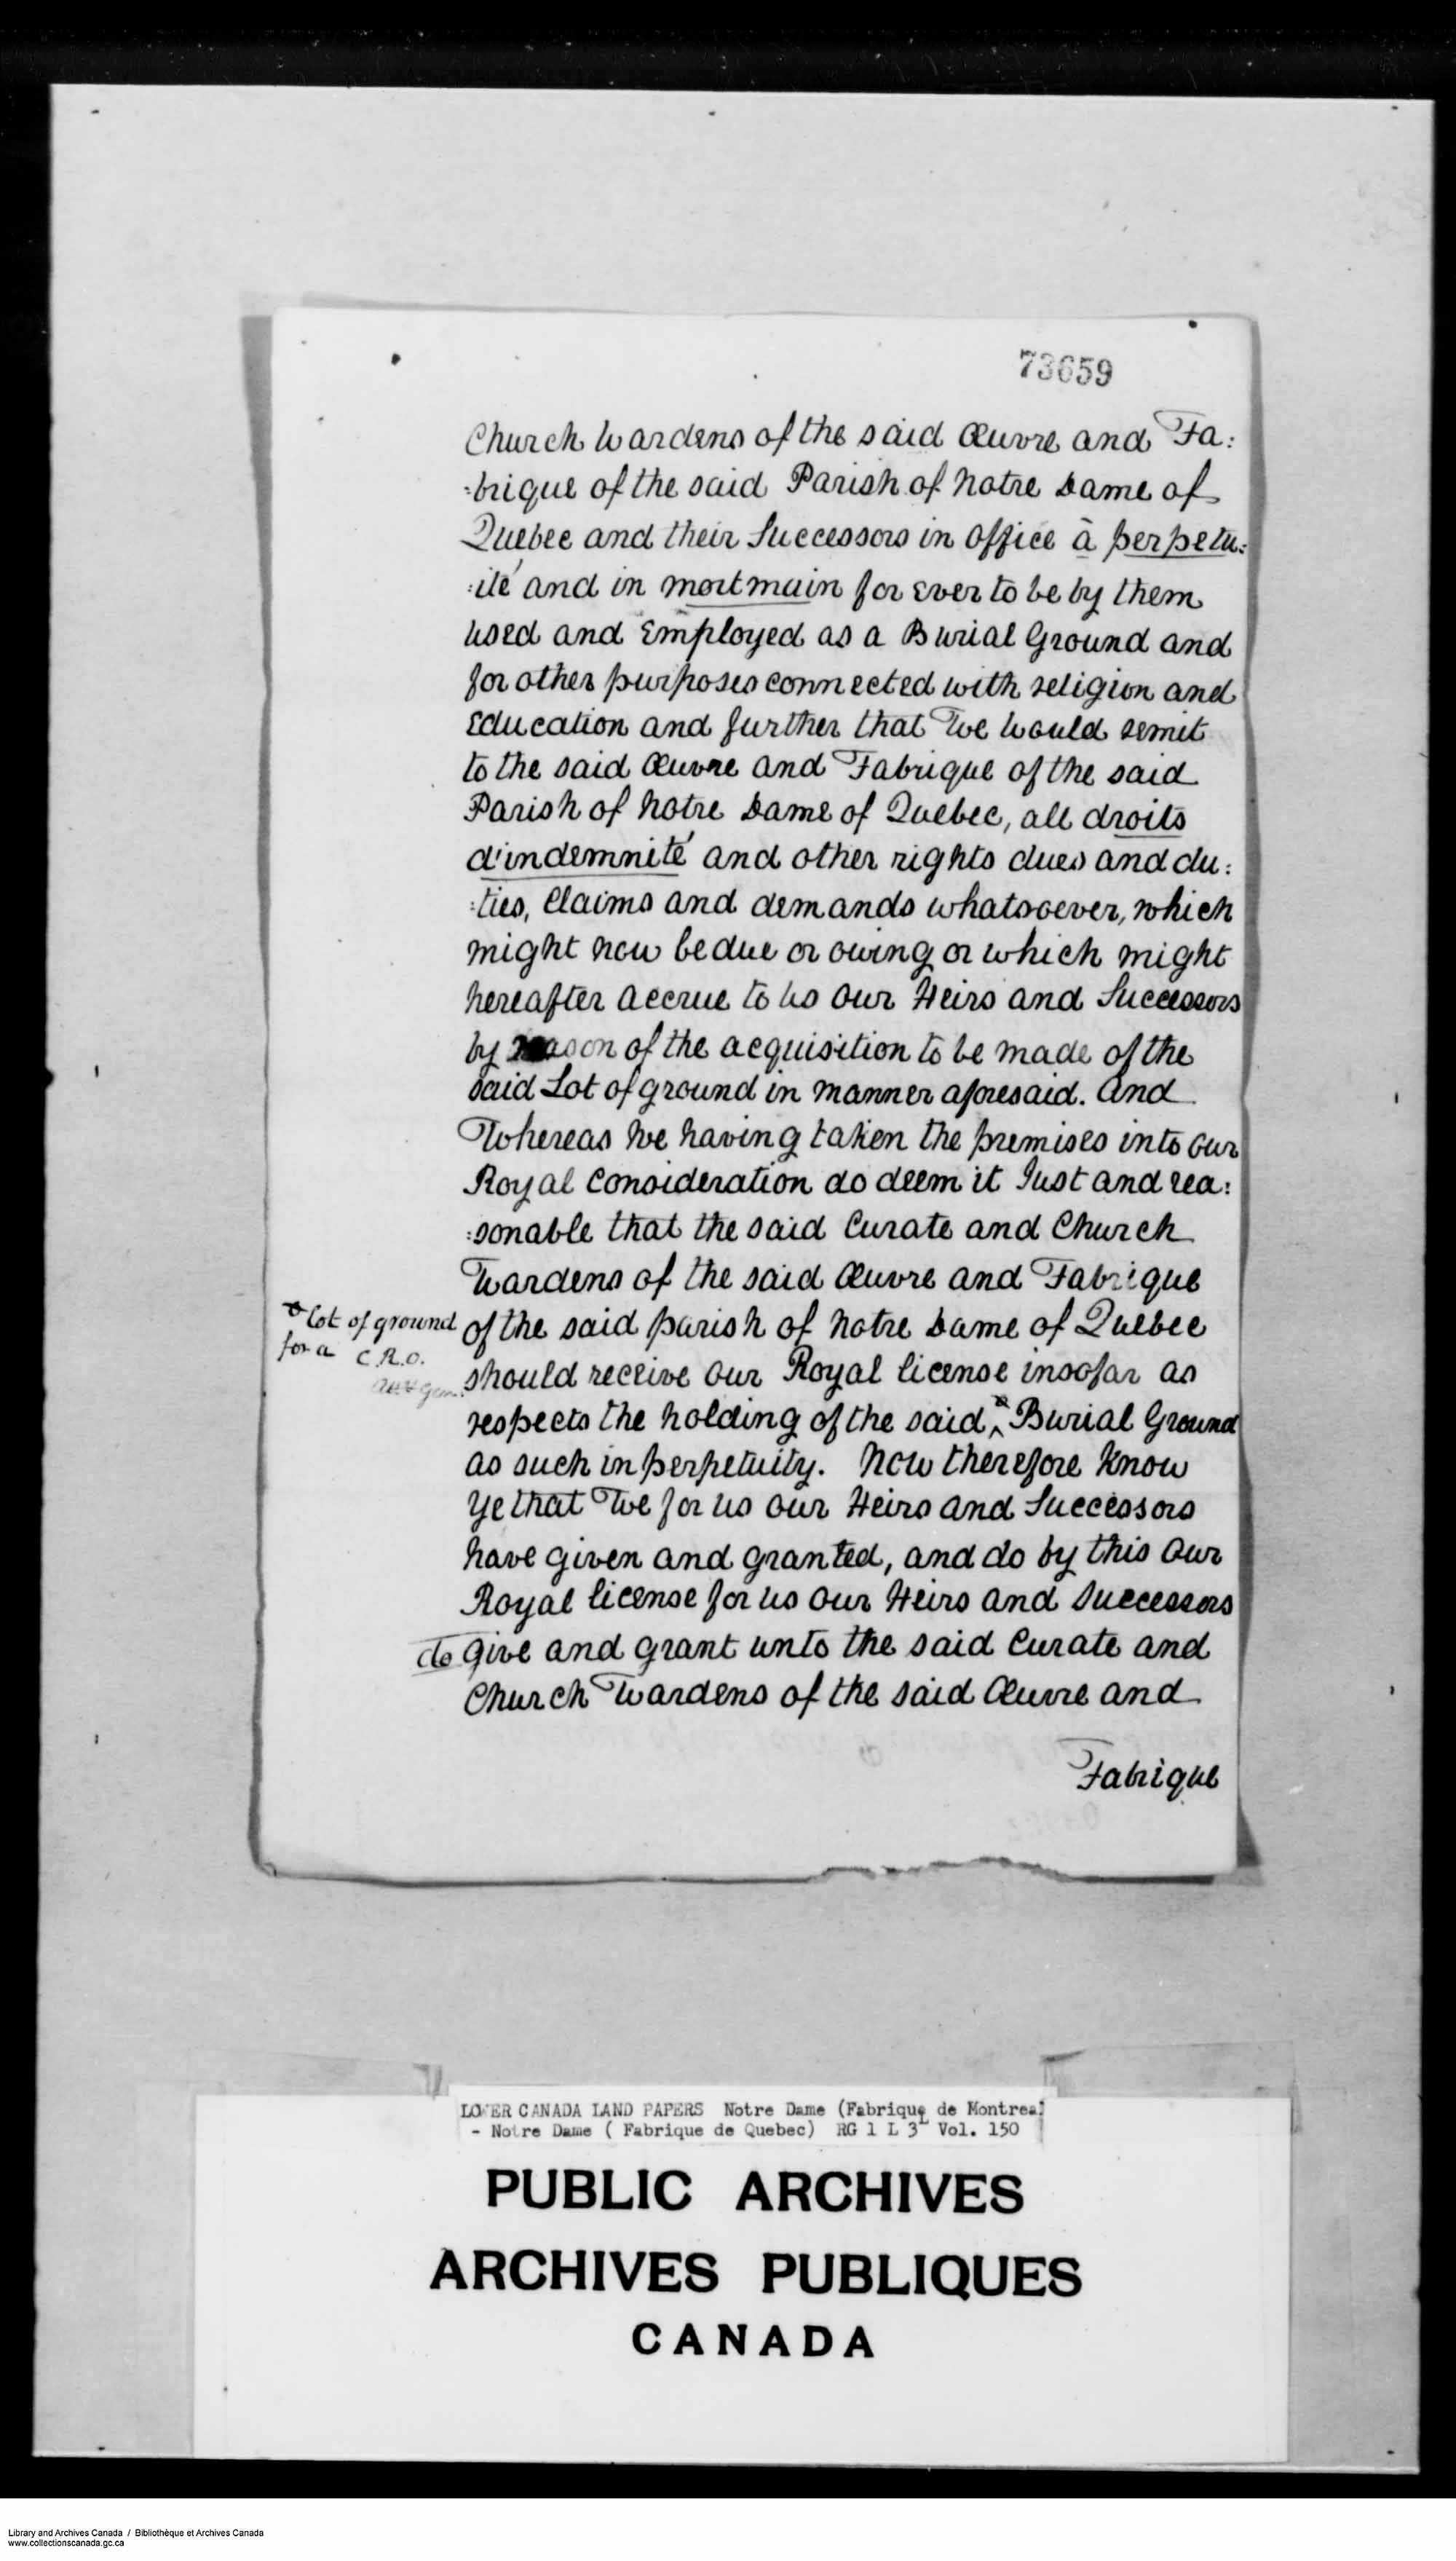 73659
Church Wardens of the said Œuvre and Fa:
:brique of the said Parish of Notre Dame of
Quebec and their Successors in Office à perpetu:
:ité and in mortmain for Ever to be by them
used and Employed as a Burial Ground and
for other purposes connected with religion and
Education and further that We would remit
to the said Œuvre and Fabrique of the said
Parish of Notre Dame of Quebec, all droits
d'indemnité and other rights dues and du:
:ties, Claims and demands whatsoever, which
might now be due or owing or which might
hereafter accrue to us our Heirs and Successors
by reason of the acquisition to be made of the
said Lot of ground in manner aforesaid. And
Whereas We having taken the premises into our
Royal Consideration do deem it Just and rea:
:sonable that the said Curate and Church
Wardens of the said Œuvre and Fabrique
of the said parish of Notre Dame of Quebec
lot of ground
for a C.R.O.
Att Gen.
should receive our Royal license insofar as
respects the holding of the said Burial Ground
as such in perpetuity. Now therefore Know
Ye that We for us our Heirs and Successors
have given and granted, and do by this our
Royal license for us our Heirs and Successors
do give and grant unto the said Curate and
Church Wardens of the said Œuvre and
Fabrique
LOWER CANADA LAND PAPERS Notre Dame (Fabrique de Montreal
- Notre Dame ( Fabrique de Quebec) RG 1 L 3L Vol. 150
PUBLIC ARCHIVES
ARCHIVES PUBLIQUES
CANADA
Library and Archives Canada / Bibliothèque et Archives Canada
www.collectionscanada.gc.ca